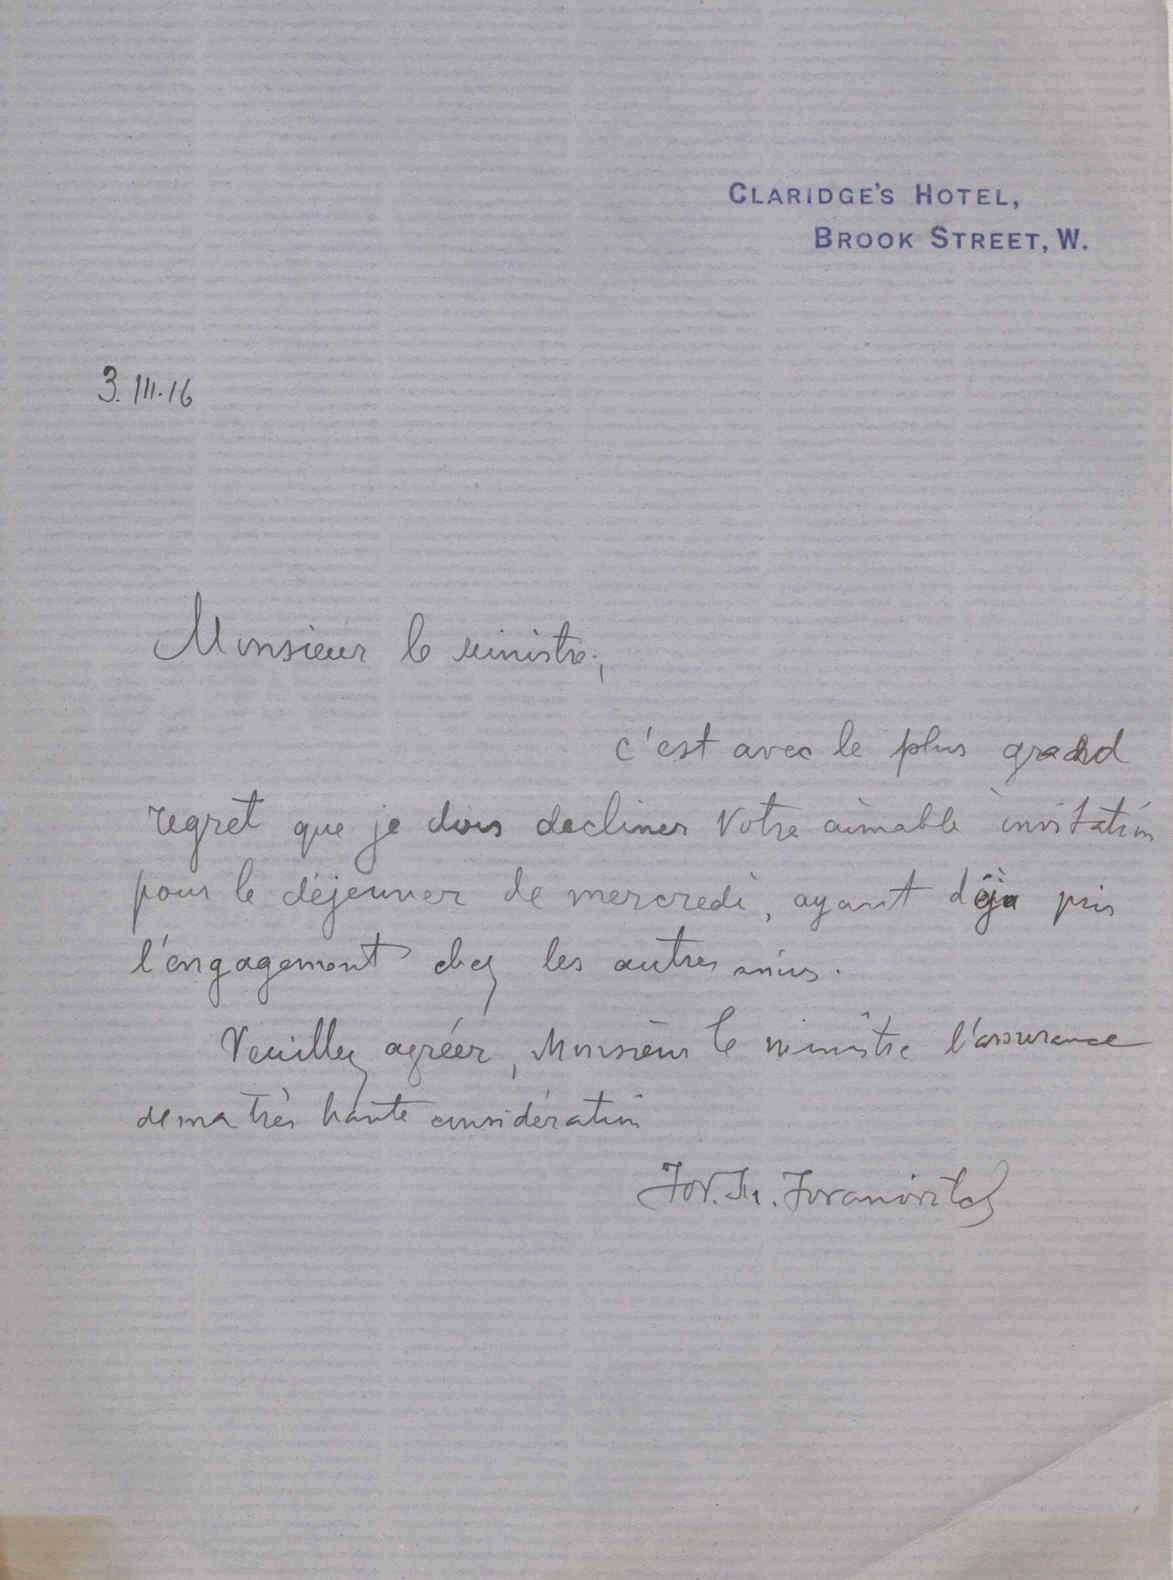 CLARIDGE'S HOTEL,
BROOK STREET, W.
3. III. 16
Monsieur le ministre,
c'est avec le plus grand
regret que je dois decliner Votre aimable invitation
pour le déjeuner de mercredi, ayant déja pris
l'engagement chez les autres amis.
Veuillez agréer, Monsieur le ministre l'assurance
de ma très haute considération
Jov. M. Jovanovitch